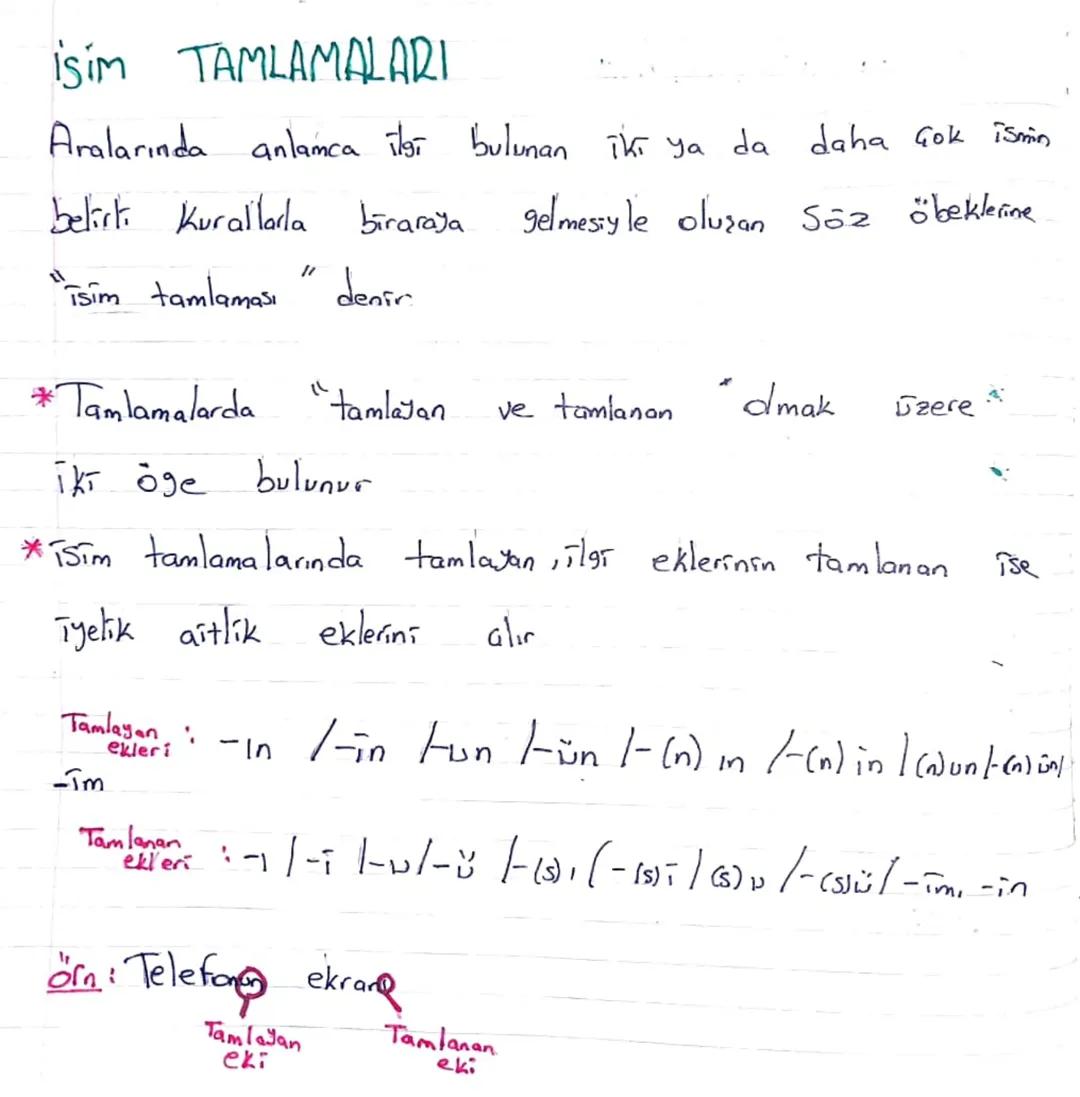 isim TAMLAMALARI
Aralarında anlamca ilgi bulunan iki ya da daha çok ismin
belirli kurallarla biraraya gelmesiyle oluşan söz öbeklerine
"isim tamlaması" denir
* Tamlamalarda "tamlayan ve tamlanan" olmak üzere
iki öge bulunur
* isim tamlamalarında tamlayan, ilgi eklerinin tamlanan ise
iyelik aitlik eklerini alır
Tamlayan ekleri : -ın /-in /-un /-ün /-(n) ın /-(n) in /(n)un/-(n)ün/
-im
Tamlanan ekleri : -ı /-i /-u/-ü /-(s)ı /-(s)i /(s)u /-(s)ü/-im, -in
örn: Telefonun ekranı
Tamlayan eki Tamlanan eki